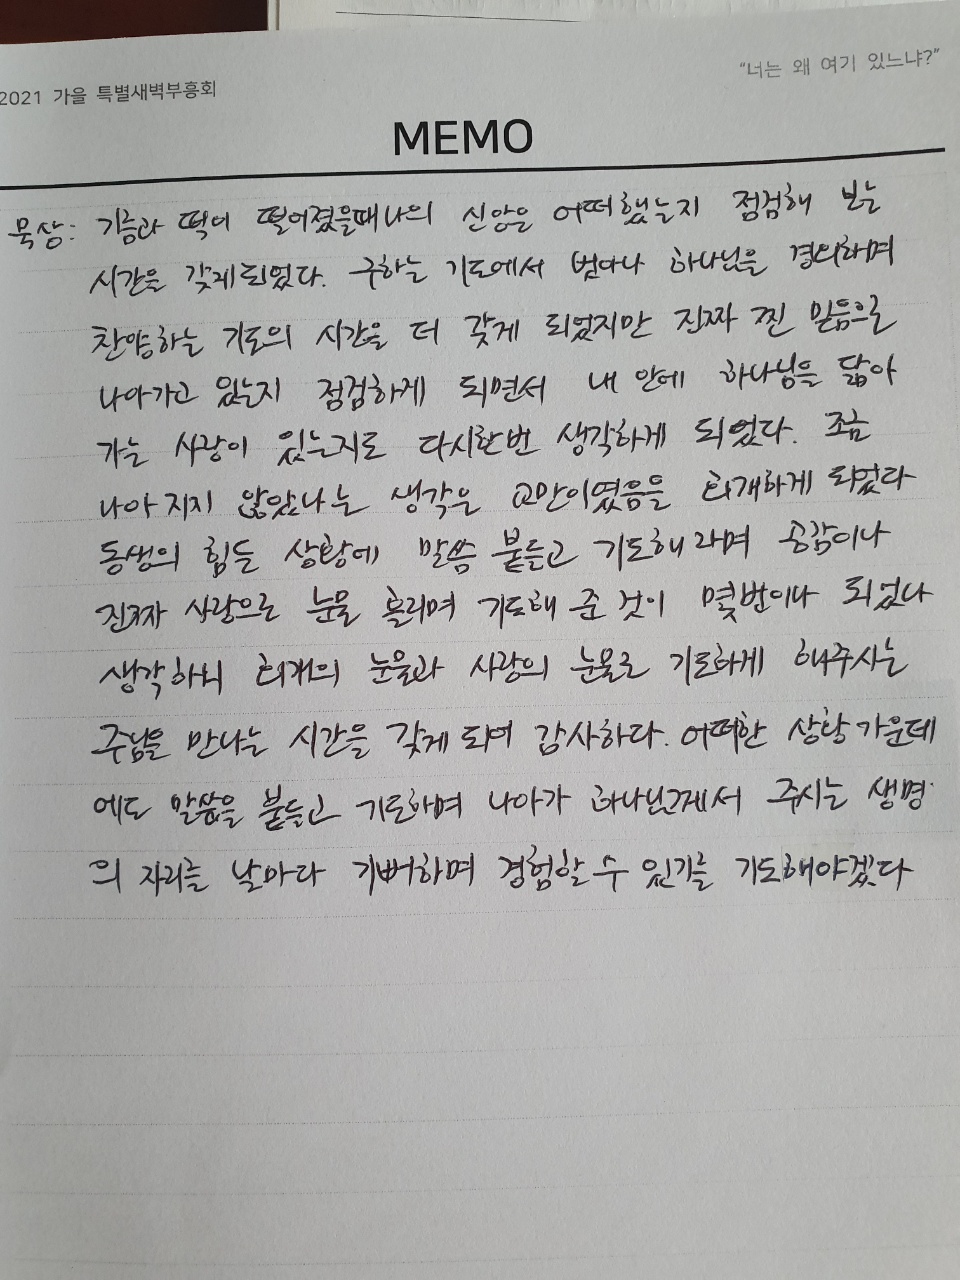 2021 가을 특별새벽부흥회
"너는 왜 여기 있느냐?"
MEMO
묵상: 기름과 떡이 떨어졌을때 나의 신앙은 어떠했는지 점검해 보는
시간을 갖게 되었다. 구하는 기도에서 벗어나 하나님을 경외하며
찬양하는 기도의 시간을 더 갖게 되었지만 진짜 찐 믿음으로
나아가고 있는지 점검하게 되면서 내 안에 하나님을 닮아
가는 사랑이 있는지로 다시한번 생각하게 되었다. 조금
나아 지지 않았나 는 생각은 교만이였음을 회개하게 되었다
동생의 힘든 상황에 말씀 붙들고 기도해 라며 공감이나
진짜 사랑으로 눈물 흘리며 기도해 준 것이 몇번이나 되었나
생각하니 회개의 눈물과 사랑의 눈물로 기도하게 해주시는
주님을 만나는 시간을 갖게 되어 감사하다. 어떠한 상황 가운데
에도 말씀을 붙들고 기도하며 나아가 하나님께서 주시는 생명
의 자리를 날마다 기뻐하며 경험할 수 있기를 기도해야겠다